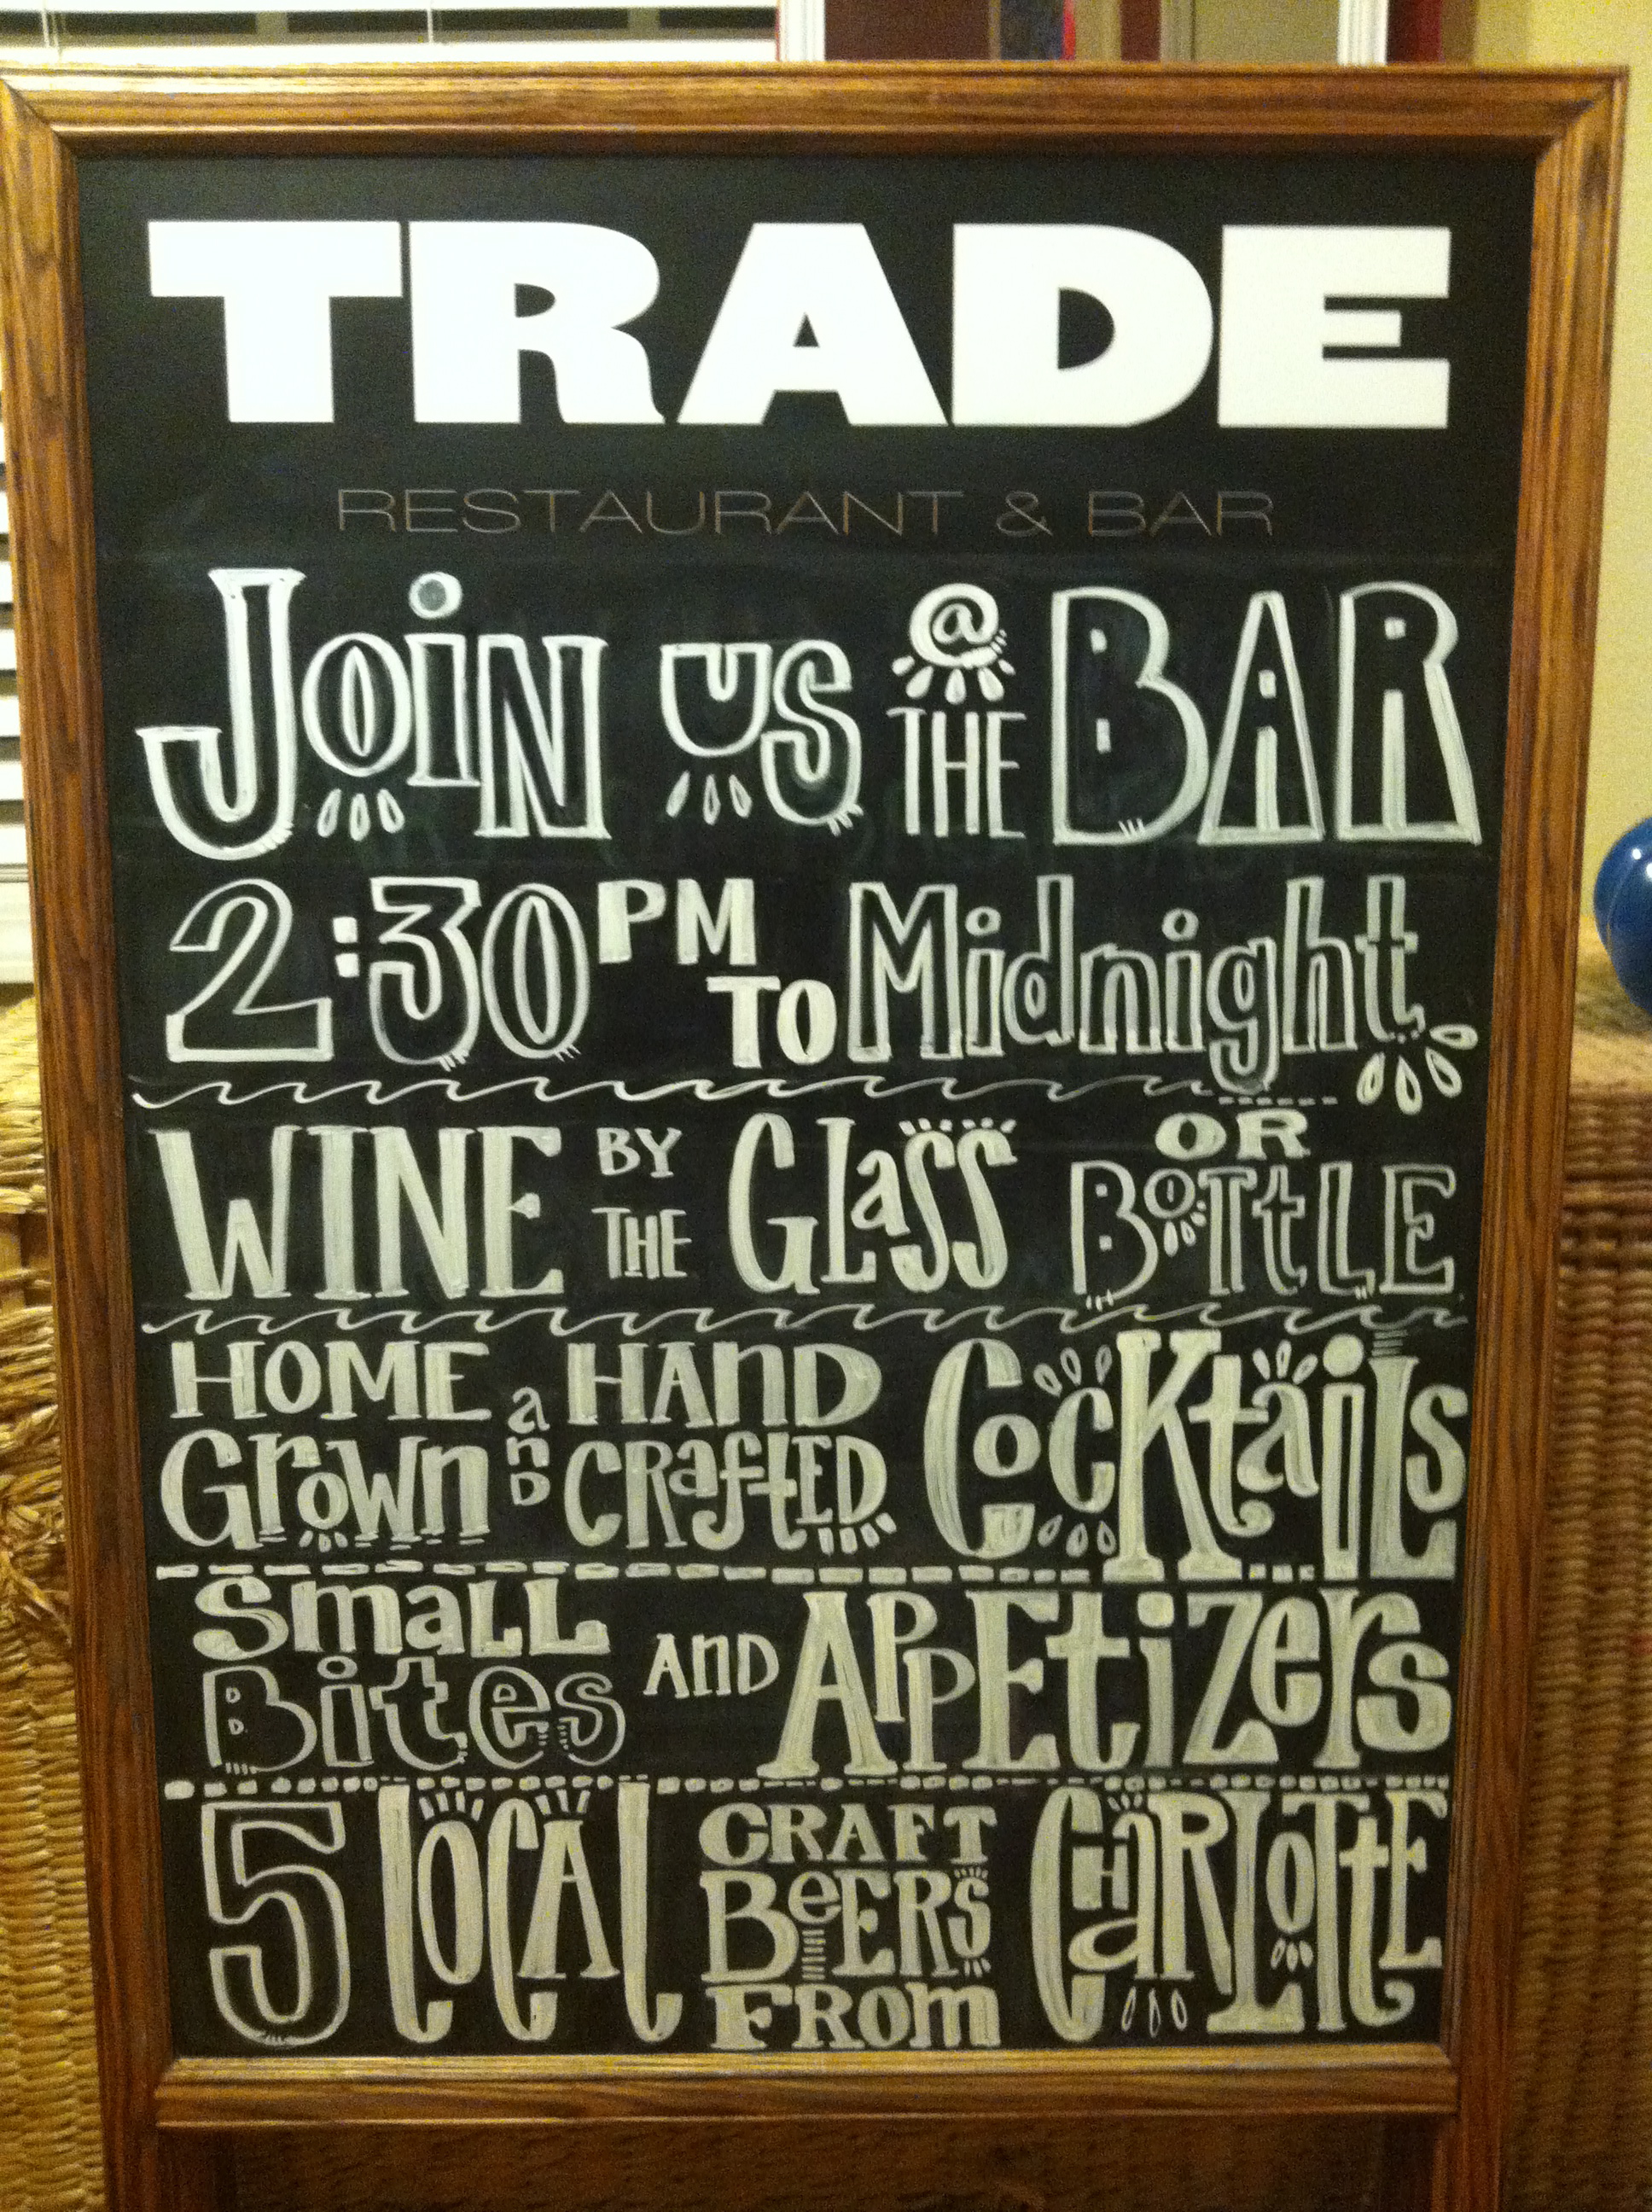 TRADE
RESTAURANT & BAR
Join us @ THE BAR
2:30 PM TO Midnight
WINE BY THE GLaSS OR BOTtLE
HOME Grown anD HAnD CRaftED CocKtaiLs
SmaLL Bites AnD APPEtiZers
5 lOCAl CRAFT BeERS FROm CHaRLOTtE